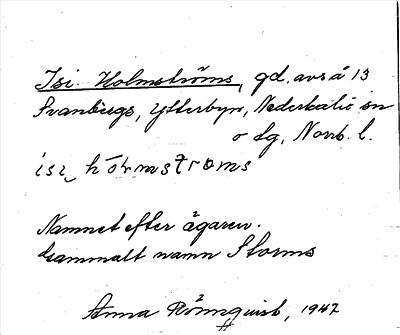 Isi Holmströms, gd. avs å 13
Svanbergs, Ytterbyn, Nederkalix sn
o lg, Norrb. l.
isi hólmströms
Namnet efter ägaren.
Gammalt namn Storms
Anna Rönnquist, 1947